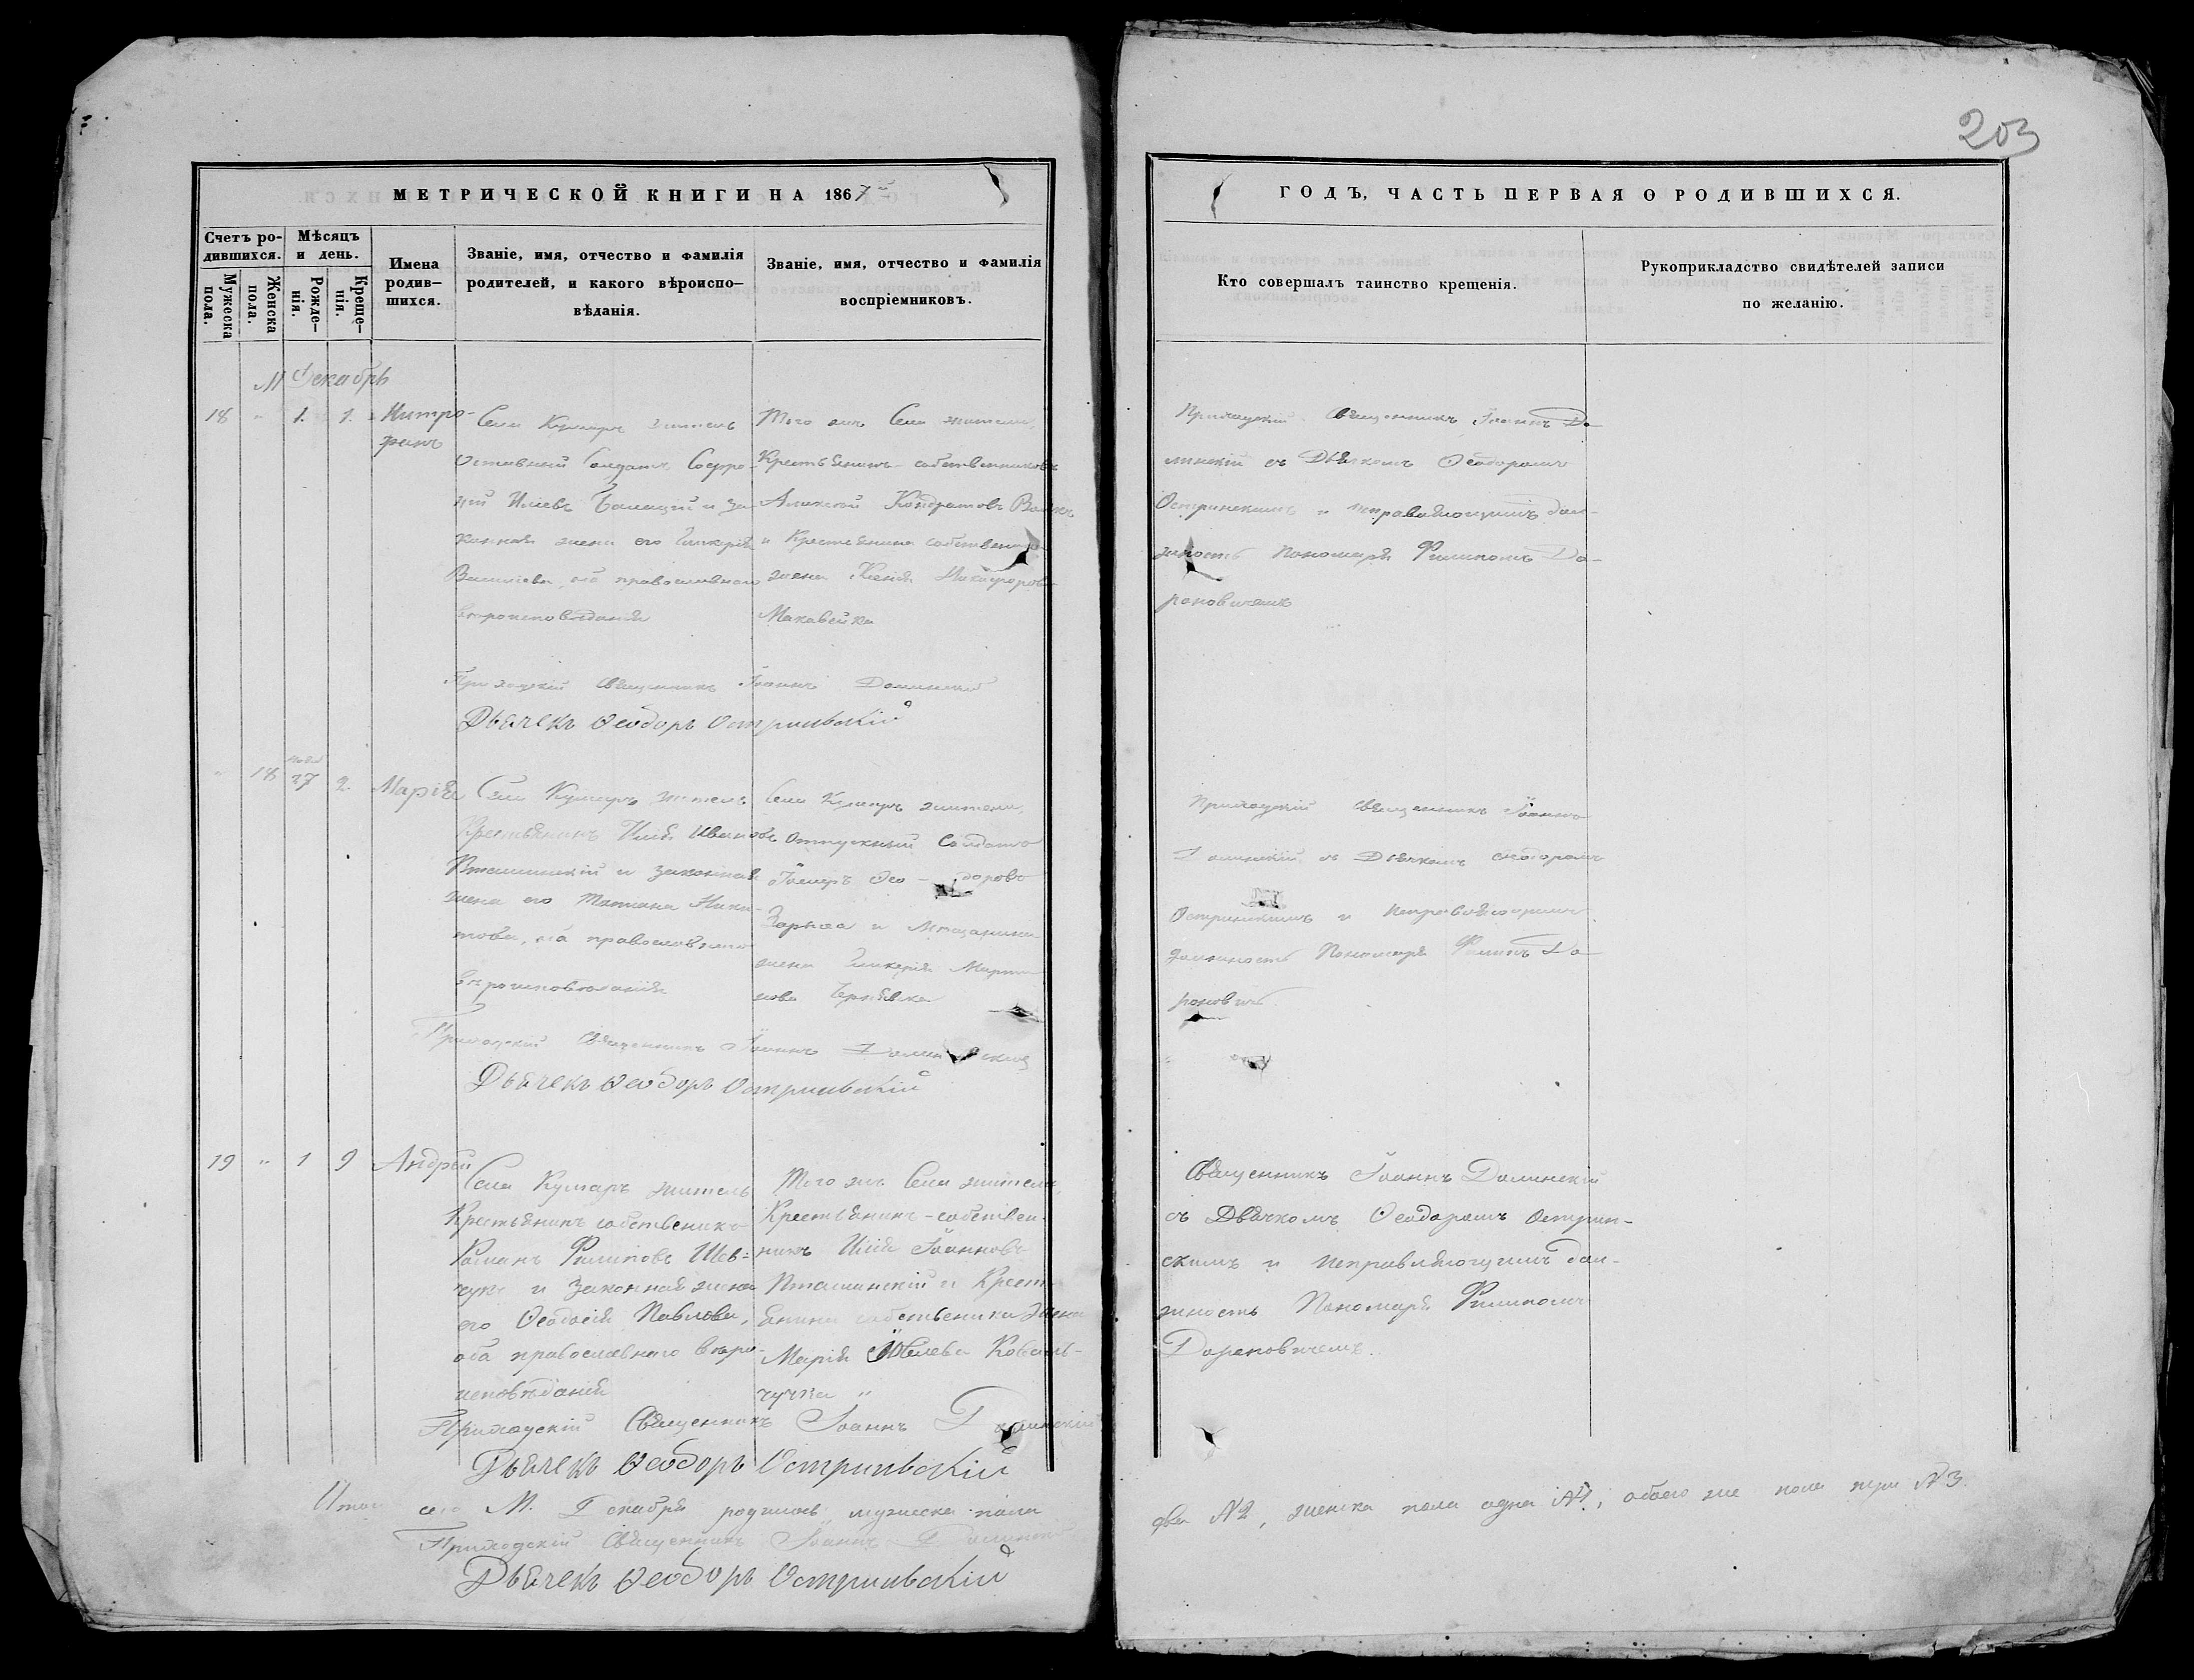 203
МЕТРИЧЕСКОЙ КНИГИ НА 1867й
ГОДЪ, ЧАСТЬ ПЕРВАЯ О РОДИВШИХСЯ.
Счетъ ро-
дившихся.
Мужеска
пола.
Женска
пола.
Мѣсяцъ
и день.
Рожде-
нія.
Креще-
нія.
Имена
родив-
шихся.
Званіе, имя, отчество и фамилія
родителей, и какого вѣроиспо-
вѣданія.
Званіе, имя, отчество и фамилія
воспріемниковъ.
Кто совершалъ таинство крещенія.
Рукоприкладство свидѣтелей записи
по желанію.
М Декабрь
18 " 1. 1.
Митро-
фанъ
Села Кушмиръ житель
Отставный Солдатъ Софро-
ній Иліевъ и за-
конная жена его Гликерія
оба православнаго
вѣроисповѣданія
Того жъ Села жители,
Крестьянинъ-собственникъ
Алексѣй Кондратовъ
и Крестьянина собственника
жена Ксенія Никифорова
Маковейка
Приходскій Священникъ Іоаннъ До-
линскій съ Дьячкомъ Ѳеодоромъ
Остринскимъ и исправляющимъ дол-
жность Пономаря Филипомъ До-
роновичемъ
Приходскій Священникъ Іоаннъ Долинскій
Дьячекъ Ѳеодоръ Остринскій
" 18 27 2.
Марія
Села житель
Крестьянинъ Илія Ивановъ
Пташинскій и законная
жена его Татіана Ники-
това, оба православнаго
вѣроисповѣданія
Села жители,
Отпускный Солдатъ
Ѳео-доровъ
и Мѣщанина
жена Гликерія Марти-
нова
Приходскій Священникъ Іоаннъ
Долинскій съ Дьячкомъ Ѳеодоромъ
Остринскимъ и Исправляющимъ
должность Пономаря Филипъ До-
роновичъ
Приходскій Священникъ Іоаннъ Долинский
Дьячекъ Ѳеодоръ Остринскій
19 " 1 9
Андрей
Села житель
Крестьянинъ собственникъ
Романъ Филиповъ Шев-
чукъ и Законная жена
его Ѳеодосія Павлова,
оба православнаго вѣро-
исповѣданія
Того жъ Села жители
Крестьянинъ-собствен-
никъ Илія Іоанновъ
Пташинскій и Крест-
янина собственика жена
Марія Коваль-
чучка "
Священникъ Іоаннъ Долинскій
съ Дьячкомъ Ѳеодоромъ Острин-
скимъ и Исправляющимъ дол-
жность Пономаря Филипомъ
Дороновичемъ.
Приходскій Священникъ Іоаннъ Долинскій
Дьячекъ Ѳеодоръ Остринскій
Итого сего М. Декабря родилось мужеска пола
два №2, женска пола одна №1, обоего же пола три №3.
Приходскій Священникъ Іоаннъ Долинскій
Дьячекъ Ѳеодоръ Остринскій